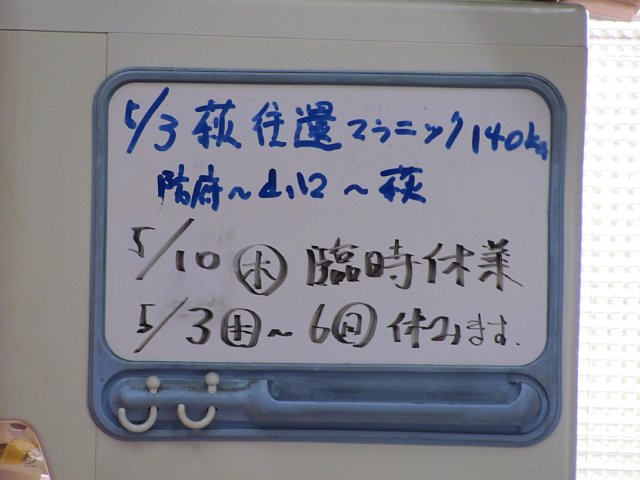 5/3 萩往還マラニック140km
防府~山口~萩
5/10㊍ 臨時休業
5/3㊍~6㊐ 休みます.